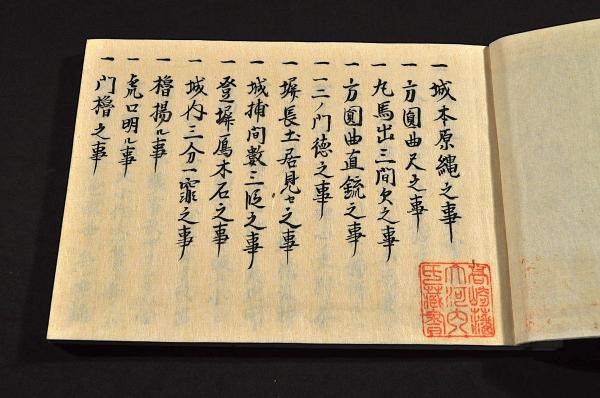 一城本原縄之事
一方圓曲尺之事
一丸馬出三間欠之事
一方圓曲直銃之事
一一二ノ門徳之事
一塀長土居見セ之事
一城捕間数三段之事
一登塀鳫木石之事
一城内三分一霊之事
一櫓揚ル事
一虎口明ル事
一門櫓之事
高崎藩
大河内
氏蔵書